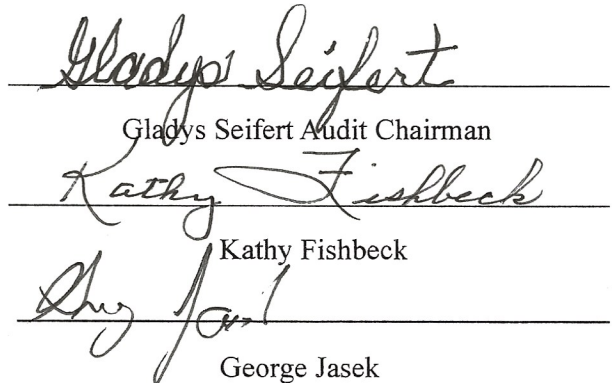 Gladys Seifert
Gladys Seifert Audit Chairman
Kathy Fishbeck
Kathy Fishbeck
George Jasek